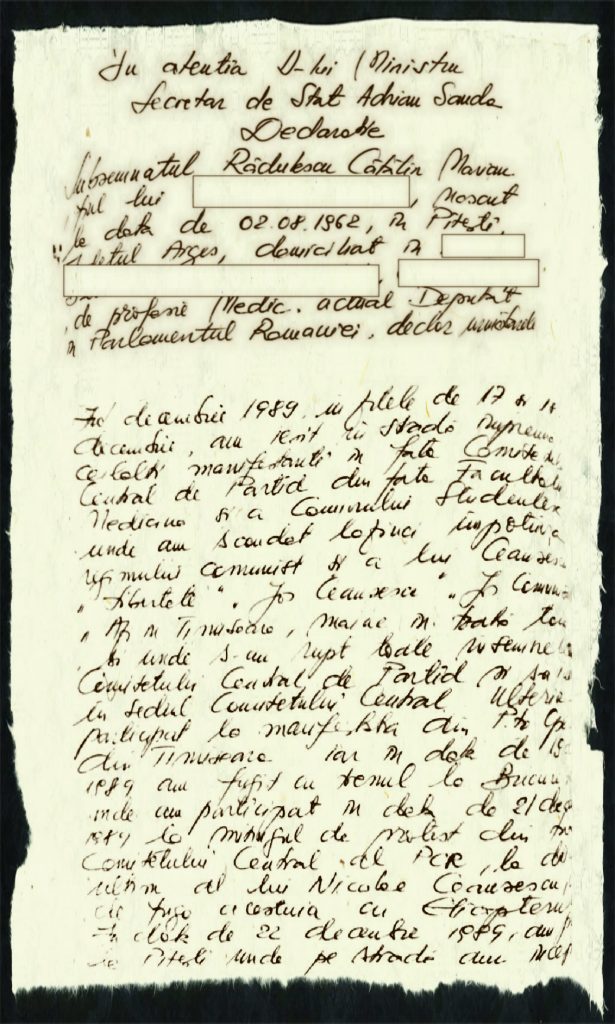 In atentia D-lui Ministru
Secretar de Stat Adrian Sanda
Declaratie
Subsemnatul Rădulescu Cătălin Marian
fiul lui , nascut
la data de 02.08.1962, in Pitești,
Județul Argeș, domiciliat in
de profesie Medic. actual Deputat
in Parlamentul Romaniei, declar urmatoarele
In decembrie 1989, in zilele de 17 si 18
decembrie, am iesit in stradă impreuna
ceilalti manifestanti in fata Comitetul
Central de Partid din fata Facultatii
Medicina si a Caminului Studentesc
unde am scandat lozinci impotriva
regimului comunist si a lui Ceausescu
"libertate", "Jos Ceausescu" "Jos
"Azi in Timisoara, maine in toată
si unde s-au rupt toate insemnele
Comitetului Central de Partid si
in sediul Comitetului Central
participat la manifestatia din
din Timisoara iar in data de
1989 am fugit cu trenul la
unde am participat in data de 21
1989 la mitingul de protest din
Comitetului Central al PCR, la
ultim al lui Nicolae Ceausescu,
de fuga acestuia cu
In data de 22 decembrie 1989, am
la Pitești unde pe stradă am